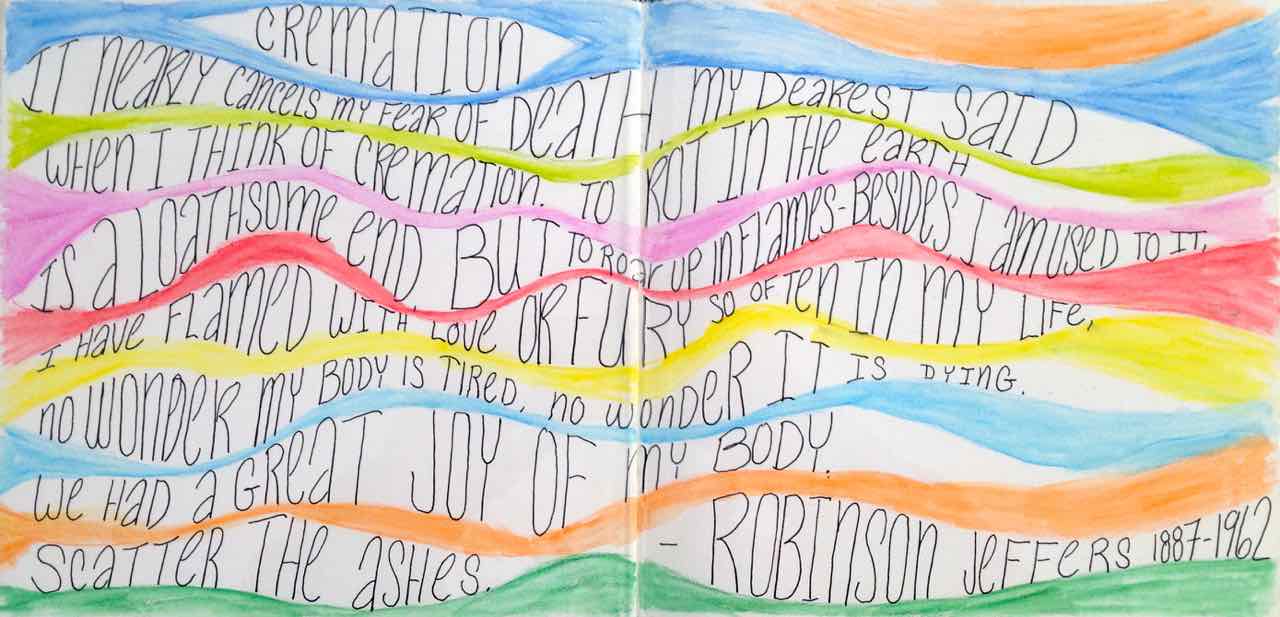 CREMATION
IT NEARLY CANCELS MY FEAR OF DEATH, MY DEAREST SAID
WHEN I THINK OF CREMATION. TO ROT IN THE EARTH
IS A LOATHSOME END BUT TO ROAR UP IN FLAMES-BESIDES, I AM USED TO IT,
I HAVE FLAMED WITH LOVE OR FURY SO OFTEN IN MY LIFE,
NO WONDER MY BODY IS TIRED, NO WONDER IT IS DYING.
WE HAD A GREAT JOY OF MY BODY.
SCATTER THE ASHES.
- ROBINSON JEFFERS 1887-1962